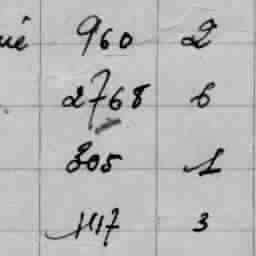 960 2
2768 6
305 1
1117 3